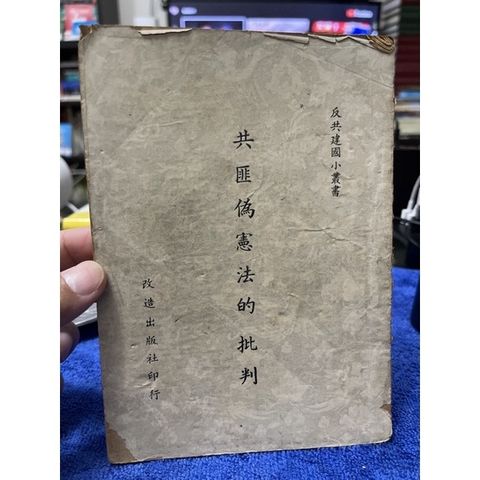 反共建國小叢書
共匪偽憲法的批判
改造出版社印行